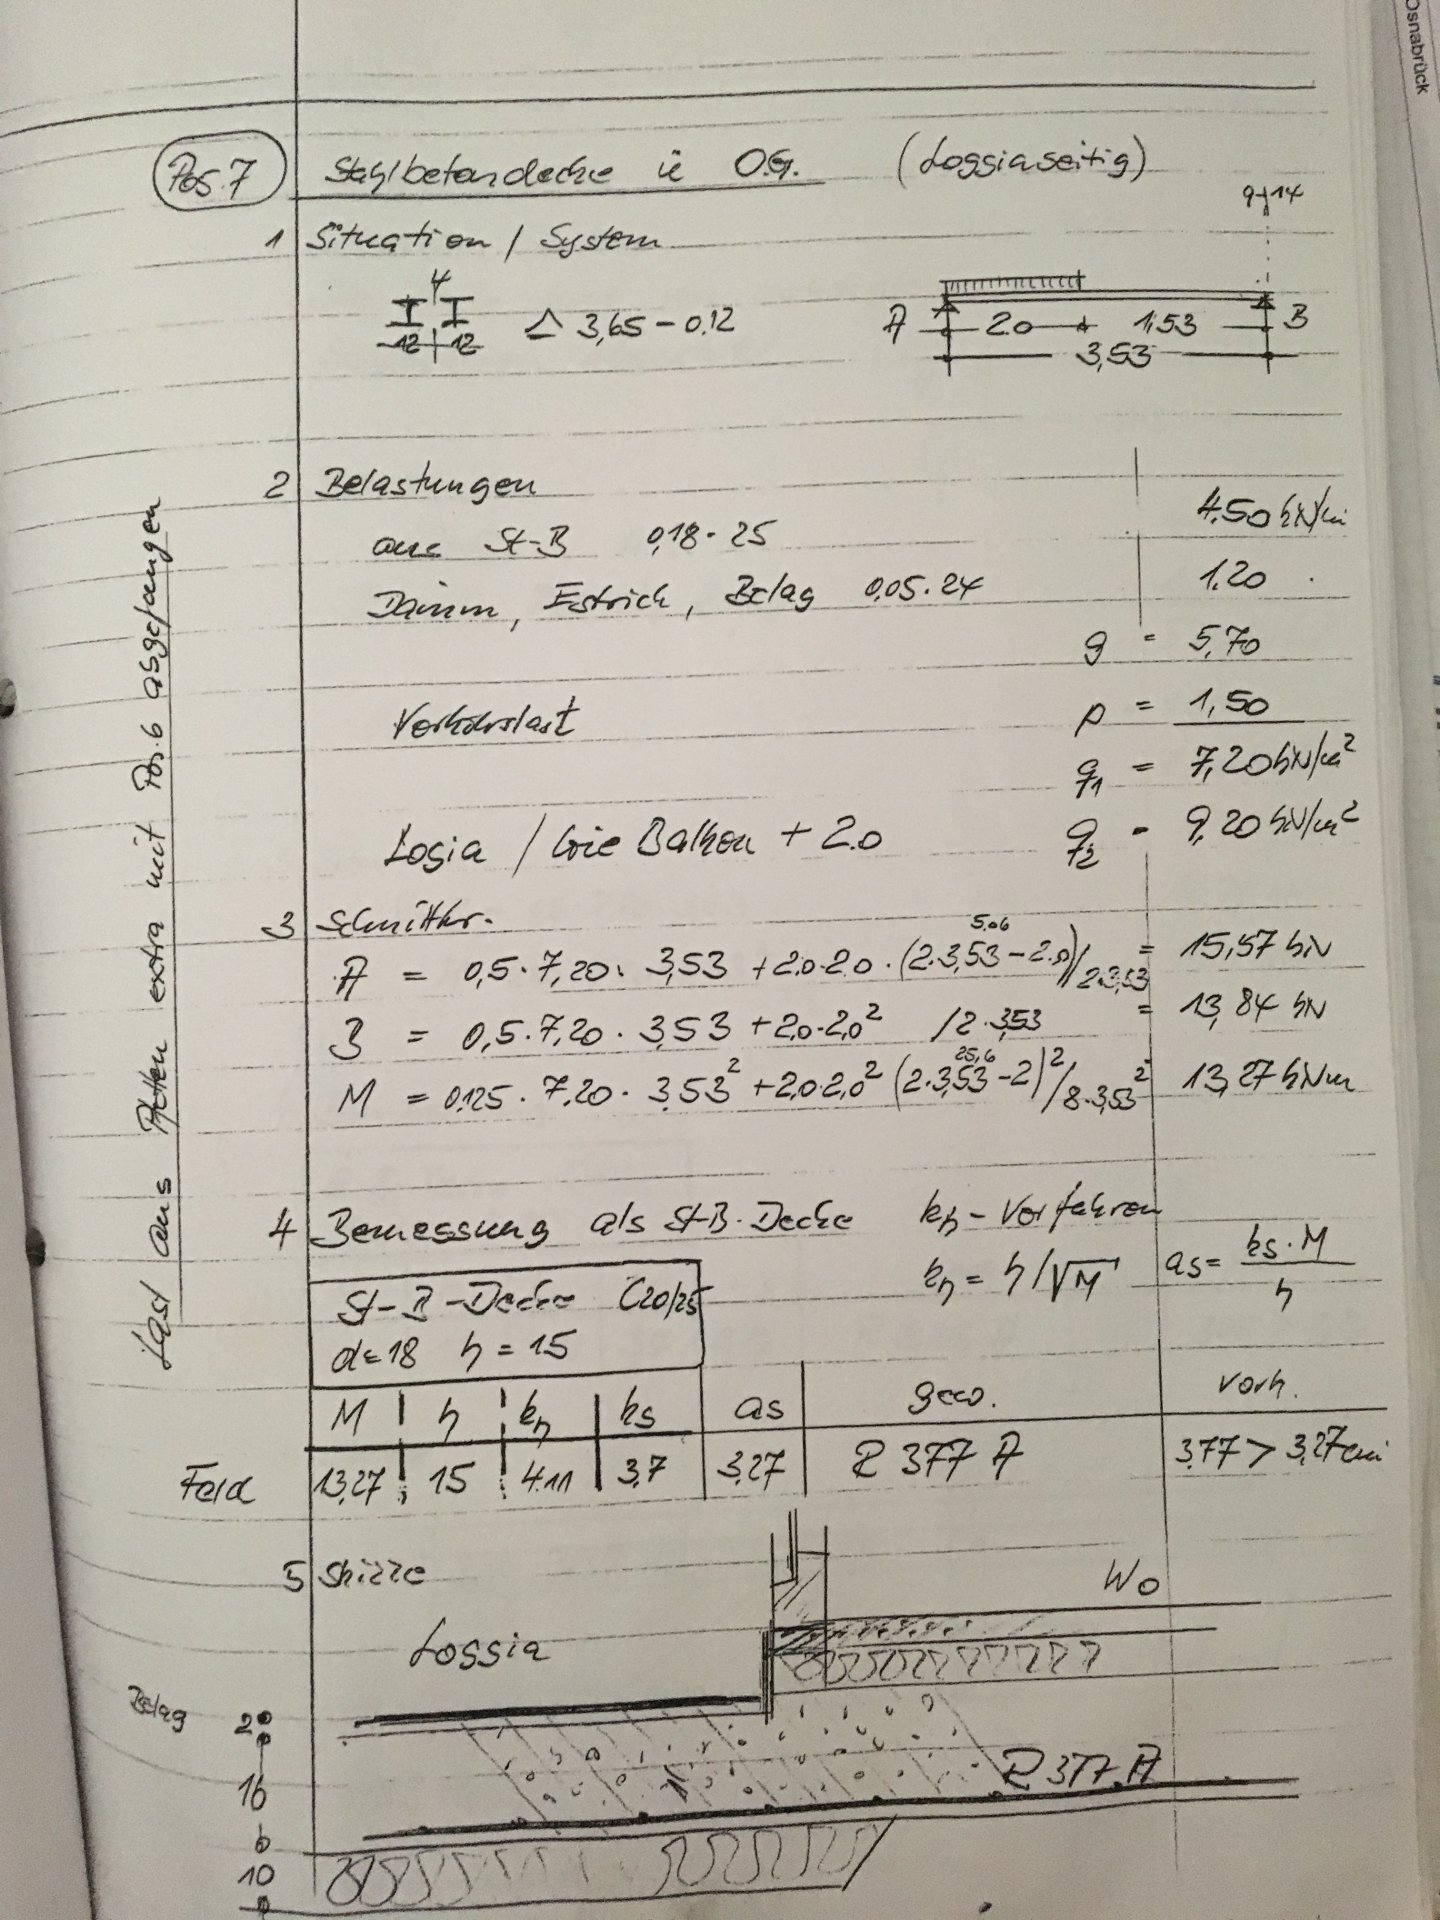 Osnabrück
Pos. 7 Stahlbetondecke ü O.G. (Loggiaseitig)
1 Situation / System
9+14
4
12 12
≙ 3,65 - 0.12
A 2.0 1,53 B
3,53
2 Belastungen
aus St-B 0,18 · 25 4.50 kN/m
Dämm, Estrich, Belag 0,05 · 24 1,20
g = 5,70
Verkehrslast p = 1,50
q1 = 7,20 kN/m²
Logia / wie Balkon + 2.0 q2 = 9,20 kN/m²
Last aus Pfetten extra mit Pos. 6 abgefangen
3 Schnittkr.
5.06
A = 0,5 · 7,20 · 3,53 + 2.0 · 2.0 · (2 · 3,53 - 2.0)/2·3,53 = 15,57 kN
B = 0,5 · 7,20 · 3,53 + 2.0 · 2,0² /2 · 3,53 = 13,84 kN
25,6
M = 0,125 · 7.20 · 3,53² + 2,0 · 2,0² (2 · 3,53 - 2)²/8·3,53² 13,27 kNm
4 Bemessung als St-B-Decke kh-Verfahren
kh = h/√M as = ks · M / h
St-B-Decke C20/25
d = 18 h = 15
M h kh ks as gew. vorh.
Feld 13,27 15 4.11 3,7 3,27 R 377 A 3,77 > 3,27 cm
5 Skizze
Wo
Loggia
Belag 2
R 377 A
16
10